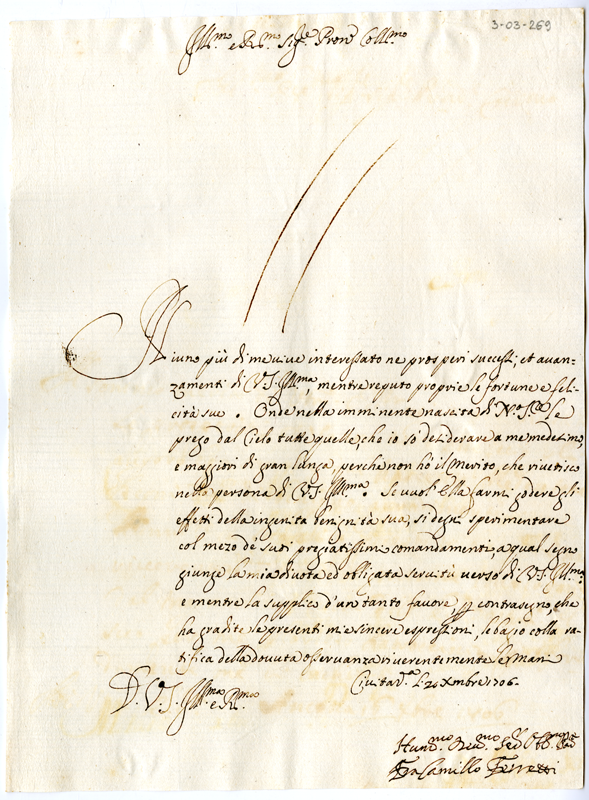 3-03-269
Ill.mo e R.mo Sig.re Pron Coll.mo
Niuno più di me vive interessato ne prosperi successi, et avan=
zamenti di V.S. Ill.ma, mentre reputo proprie le fortune e feli-
cità sue. Onde nella imminente nascita di N.ro S.re le
prego dal Cielo tutte quelle, che io sò desiderare a me medesimo,
e maggiori di gran lunga, perche non hò il Merito, che riverisco
nella persona di V.S. Ill.ma. Se vuol' Ella farmi godere gli
effetti della ingenita benignità sua, si degni sperimentare
col mezo de' suoi pregiatissimi comandamenti a qual segno
giunge la mia divota ed obligata servitù verso di V.S. Ill.ma
e mentre la supplico d'un tanto favore, p contrasegno, che
ha gradite le presenti mie sincere espressioni, le bacio colla ra-
tifica della dovuta osservanza riverentemente le Mani
Civitav.a li 20 Xmbre 1706.
D. V. S. Ill.ma e R.ma
Hum.mo Dev.mo Se.r Obb.mo
Fra Camillo Ferretti